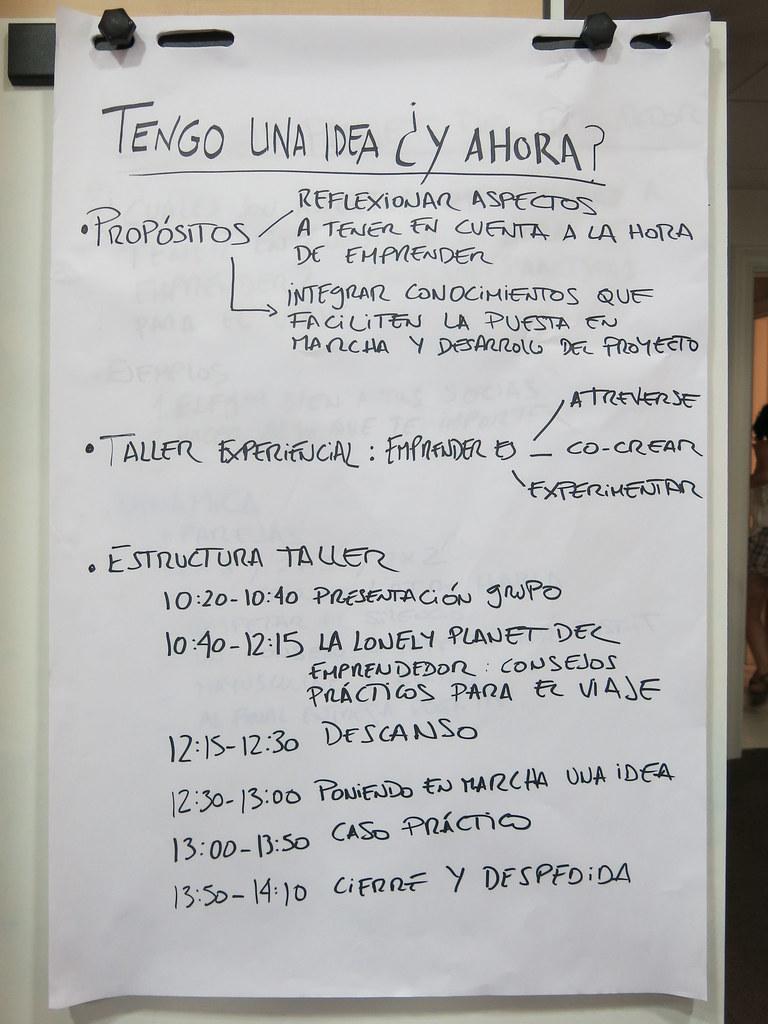 TENGO UNA IDEA ¿Y AHORA?
• PROPÓSITOS
REFLEXIONAR ASPECTOS
A TENER EN CUENTA A LA HORA
DE EMPRENDER
INTEGRAR CONOCIMIENTOS QUE
FACILITEN LA PUESTA EN
MARCHA Y DESARROLO DEL PROYECTO
• TALLER EXPERIENCIAL: EMPRENDER ES
ATREVERSE
CO-CREAR
EXPERIMENTAR
• ESTRUCTURA TALLER
10:20-10:40 PRESENTACIÓN GRUPO
10:40-12:15 LA LONELY PLANET DEL
EMPRENDEDOR: CONSEJOS
PRÁCTICOS PARA EL VIAJE
12:15-12:30 DESCANSO
12:30-13:00 PONIENDO EN MARCHA UNA IDEA
13:00-13:50 CASO PRÁCTICO
13:50-14:10 CIERRE Y DESPEDIDA